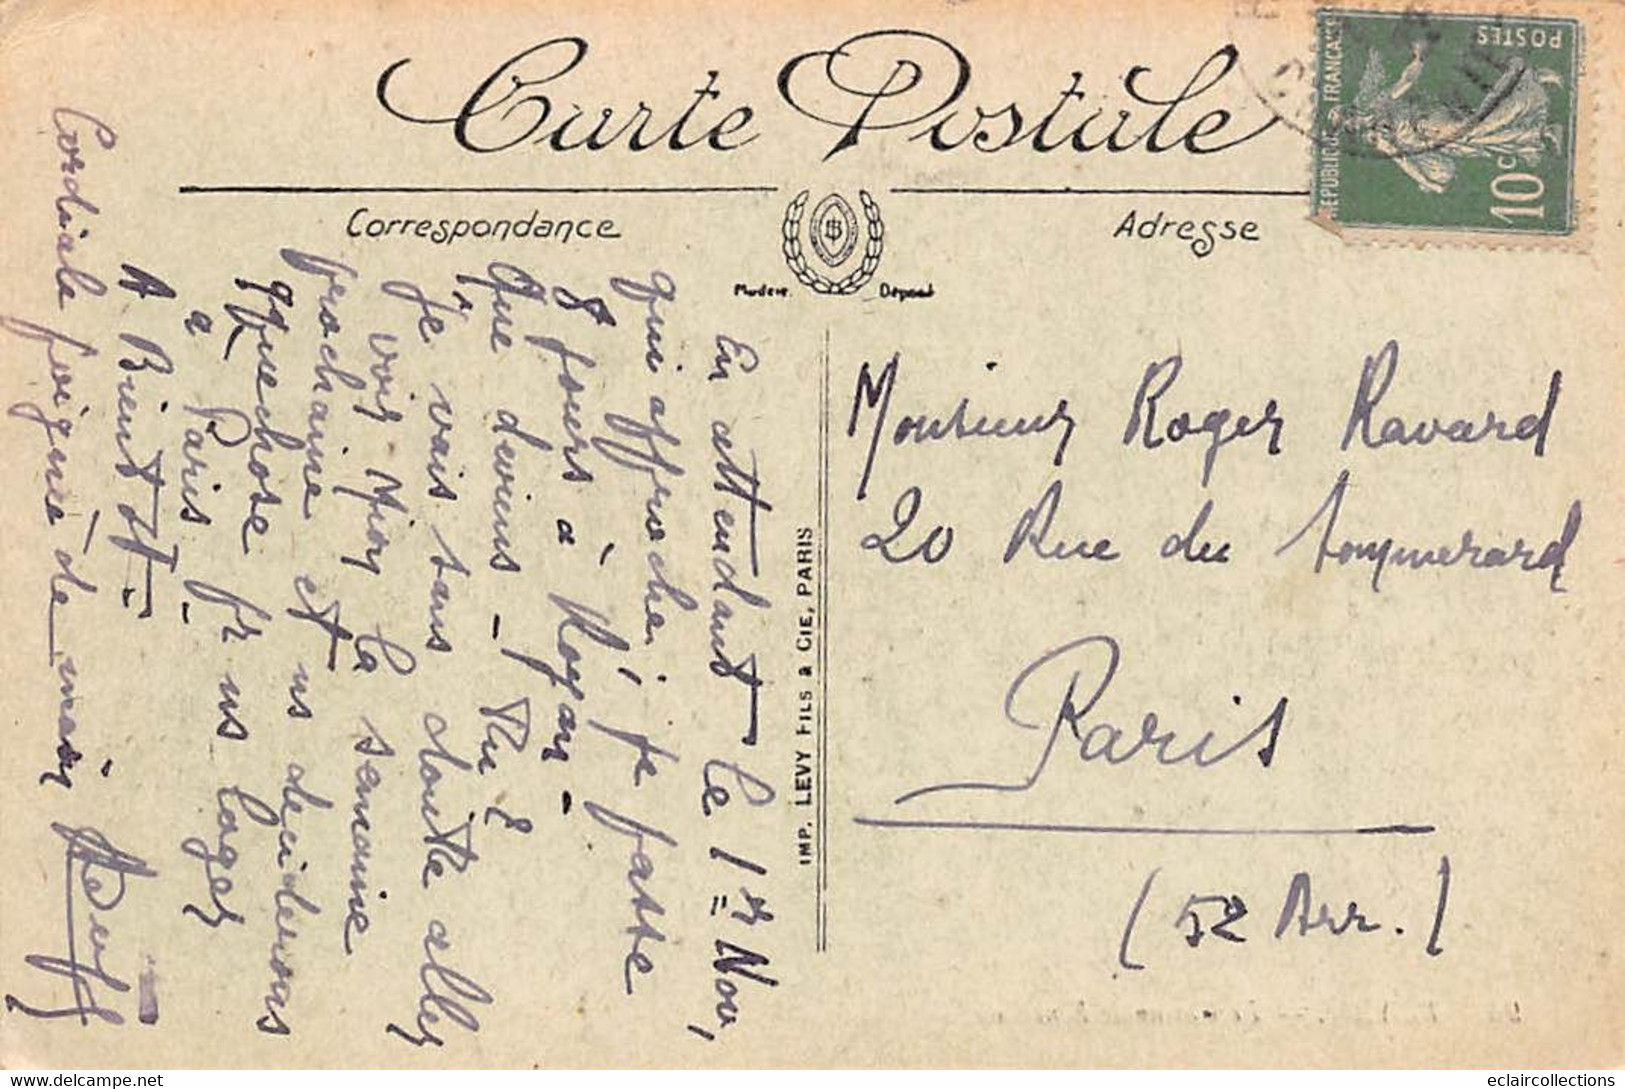 Carte Postale
Correspondance
Adresse
RÉPUBLIQUE FRANÇAISE
POSTES
10c
Modèle
Déposé
B
IMP. LEVY FILS & CIE, PARIS
En attendant le 1er Nov,
qui approche, je passe
8 jours à Royan -
Que deviens-Tu ?
Je vais sans doute aller
voir la semaine
prochaine et ns deciderons
qquechose pr ns loger
à Paris -
A Bientôt -
Cordiale poignée de main
Monsieur Roger Ravard
20 Rue du Sommerard
Paris
(5e Arr.)
eclaircollections